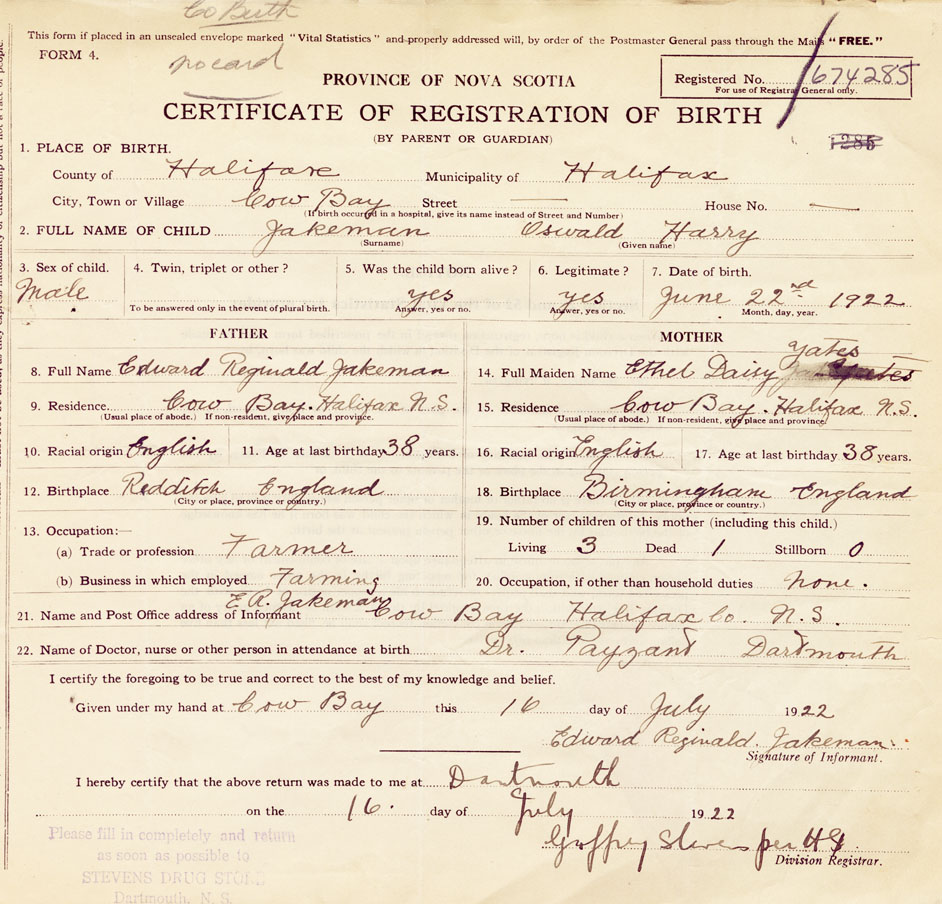 Co Birth
This form if placed in an unsealed envelope marked "Vital Statistics" and properly addressed will, by order of the Postmaster General pass through the Mails "FREE."
FORM 4.
no card
PROVINCE OF NOVA SCOTIA
Registered No. 674285
For use of Registrar General only.
CERTIFICATE OF REGISTRATION OF BIRTH
(BY PARENT OR GUARDIAN)
1285
1. PLACE OF BIRTH.
County of Halifax Municipality of Halifax
City, Town or Village Cow Bay Street — House No. —
(If birth occurred in a hospital, give its name instead of Street and Number)
2. FULL NAME OF CHILD Jakeman Oswald Harry
(Surname) (Given name)
3. Sex of child. 4. Twin, triplet or other? 5. Was the child born alive? 6. Legitimate? 7. Date of birth.
Male yes yes June 22nd 1922
To be answered only in the event of plural birth. Answer, yes or no. Answer, yes or no. Month, day, year.
FATHER MOTHER
Yates
8. Full Name Edward Reginald Jakeman 14. Full Maiden Name Ethel Daisy Yates
9. Residence Cow Bay. Halifax N.S. 15. Residence Cow Bay. Halifax N.S.
(Usual place of abode.) If non-resident, give place and province. (Usual place of abode.) If non-resident, give place and province.
10. Racial origin English 11. Age at last birthday 38 years. 16. Racial origin English 17. Age at last birthday 38 years.
12. Birthplace Redditch England 18. Birthplace Birmingham England
(City or place, province or country.) (City or place, province or country.)
19. Number of children of this mother (including this child.)
13. Occupation:—
(a) Trade or profession Farmer Living 3 Dead 1 Stillborn 0
(b) Business in which employed Farming 20. Occupation, if other than household duties none.
E.R. Jakeman
21. Name and Post Office address of Informant Cow Bay Halifax Co. N.S.
22. Name of Doctor, nurse or other person in attendance at birth Dr. Payzant Dartmouth
I certify the foregoing to be true and correct to the best of my knowledge and belief.
Given under my hand at Cow Bay this 16 day of July 1922
Edward Reginald Jakeman.
Signature of Informant.
I hereby certify that the above return was made to me at Dartmouth
on the 16. day of July 1922
per
Division Registrar.
Please fill in completely and return
as soon as possible to
STEVENS DRUG STORE
Dartmouth, N. S.